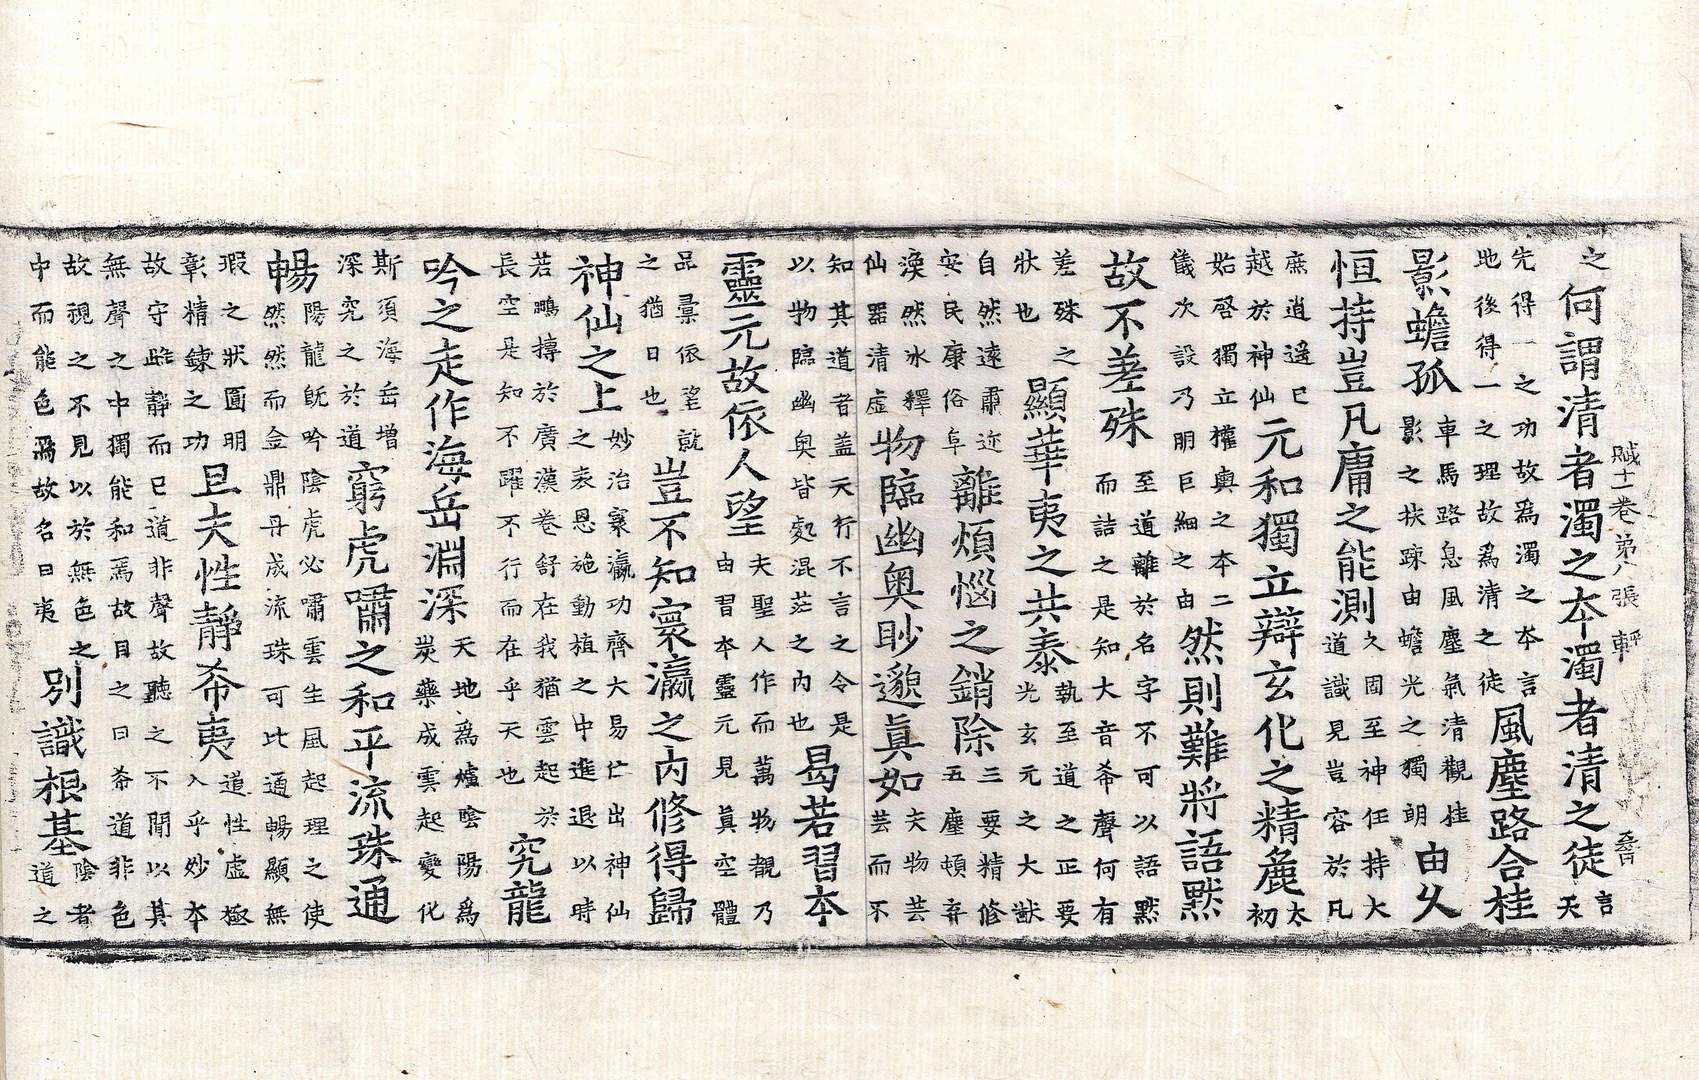 之何謂清者濁之本濁者清之徒言
天
先得一之功故爲濁之本言
地後得一之理故爲清之徒
風塵路合桂
影蟾孤
車馬路息風塵氣清觀桂
影之扶踈由蟾光之獨朗
由久
恒持豈凡庸之能測
久固至神任持大
道識見豈容於凡
庶逍遙已
越於神仙
元和獨立辯玄化之精麁
太
初
始啓獨立權輿之本二
儀次設乃明巨細之由
然則難將語默
故不差殊
至道離於名字不可以語默
而詰之是知大音希聲何有
差殊之
狀也
顯華夷之共泰
執至道之正要
光玄元之大猷
自然遠肅迩
安民康俗阜
離煩惱之銷除
三要精修
五塵頓弃
渙然冰釋
仙器清虛
物臨幽奥眇邈眞如
夫物芸
芸而不
知其道者盖天行不言之令是
以物臨幽奥皆處混茫之内也
曷若習本
靈元故依人望
夫聖人作而萬物覩乃
由習本靈元見眞空體
品彙依望就
之猶日也
豈不知寰瀛之内修得歸
神仙之上
妙治寰瀛功齊大易亡出神仙
之表恩施動植之中進退以時
若鵬摶於廣漢卷舒在我猶雲起於
長空是知不躍不行而在乎天也
究龍
吟之走作海岳淵深
天地爲爐陰陽爲
炭藥成雲起變化
斯須海岳增
深究之於道
窮虎嘯之和平流珠通
暢
陽龍旣吟陰虎必嘯雲生風起理之使
然然而金鼎丹成流珠可比通暢顯無
瑕之狀圓明
彰精鍊之功
且夫性靜希夷
道性虛極
入乎妙本
故守雌靜而已道非聲故聽之不聞以其
無聲之中獨能和焉故目之曰希道非色
故視之不見以於無色之
中而能色焉故名曰夷
別識根基
陰者
道之
賦十一巻弟八張 軒